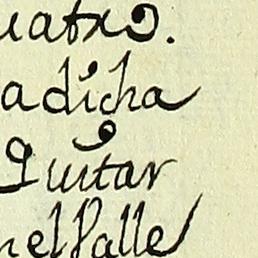 uatro.
adicha
Quitar
nelsalle